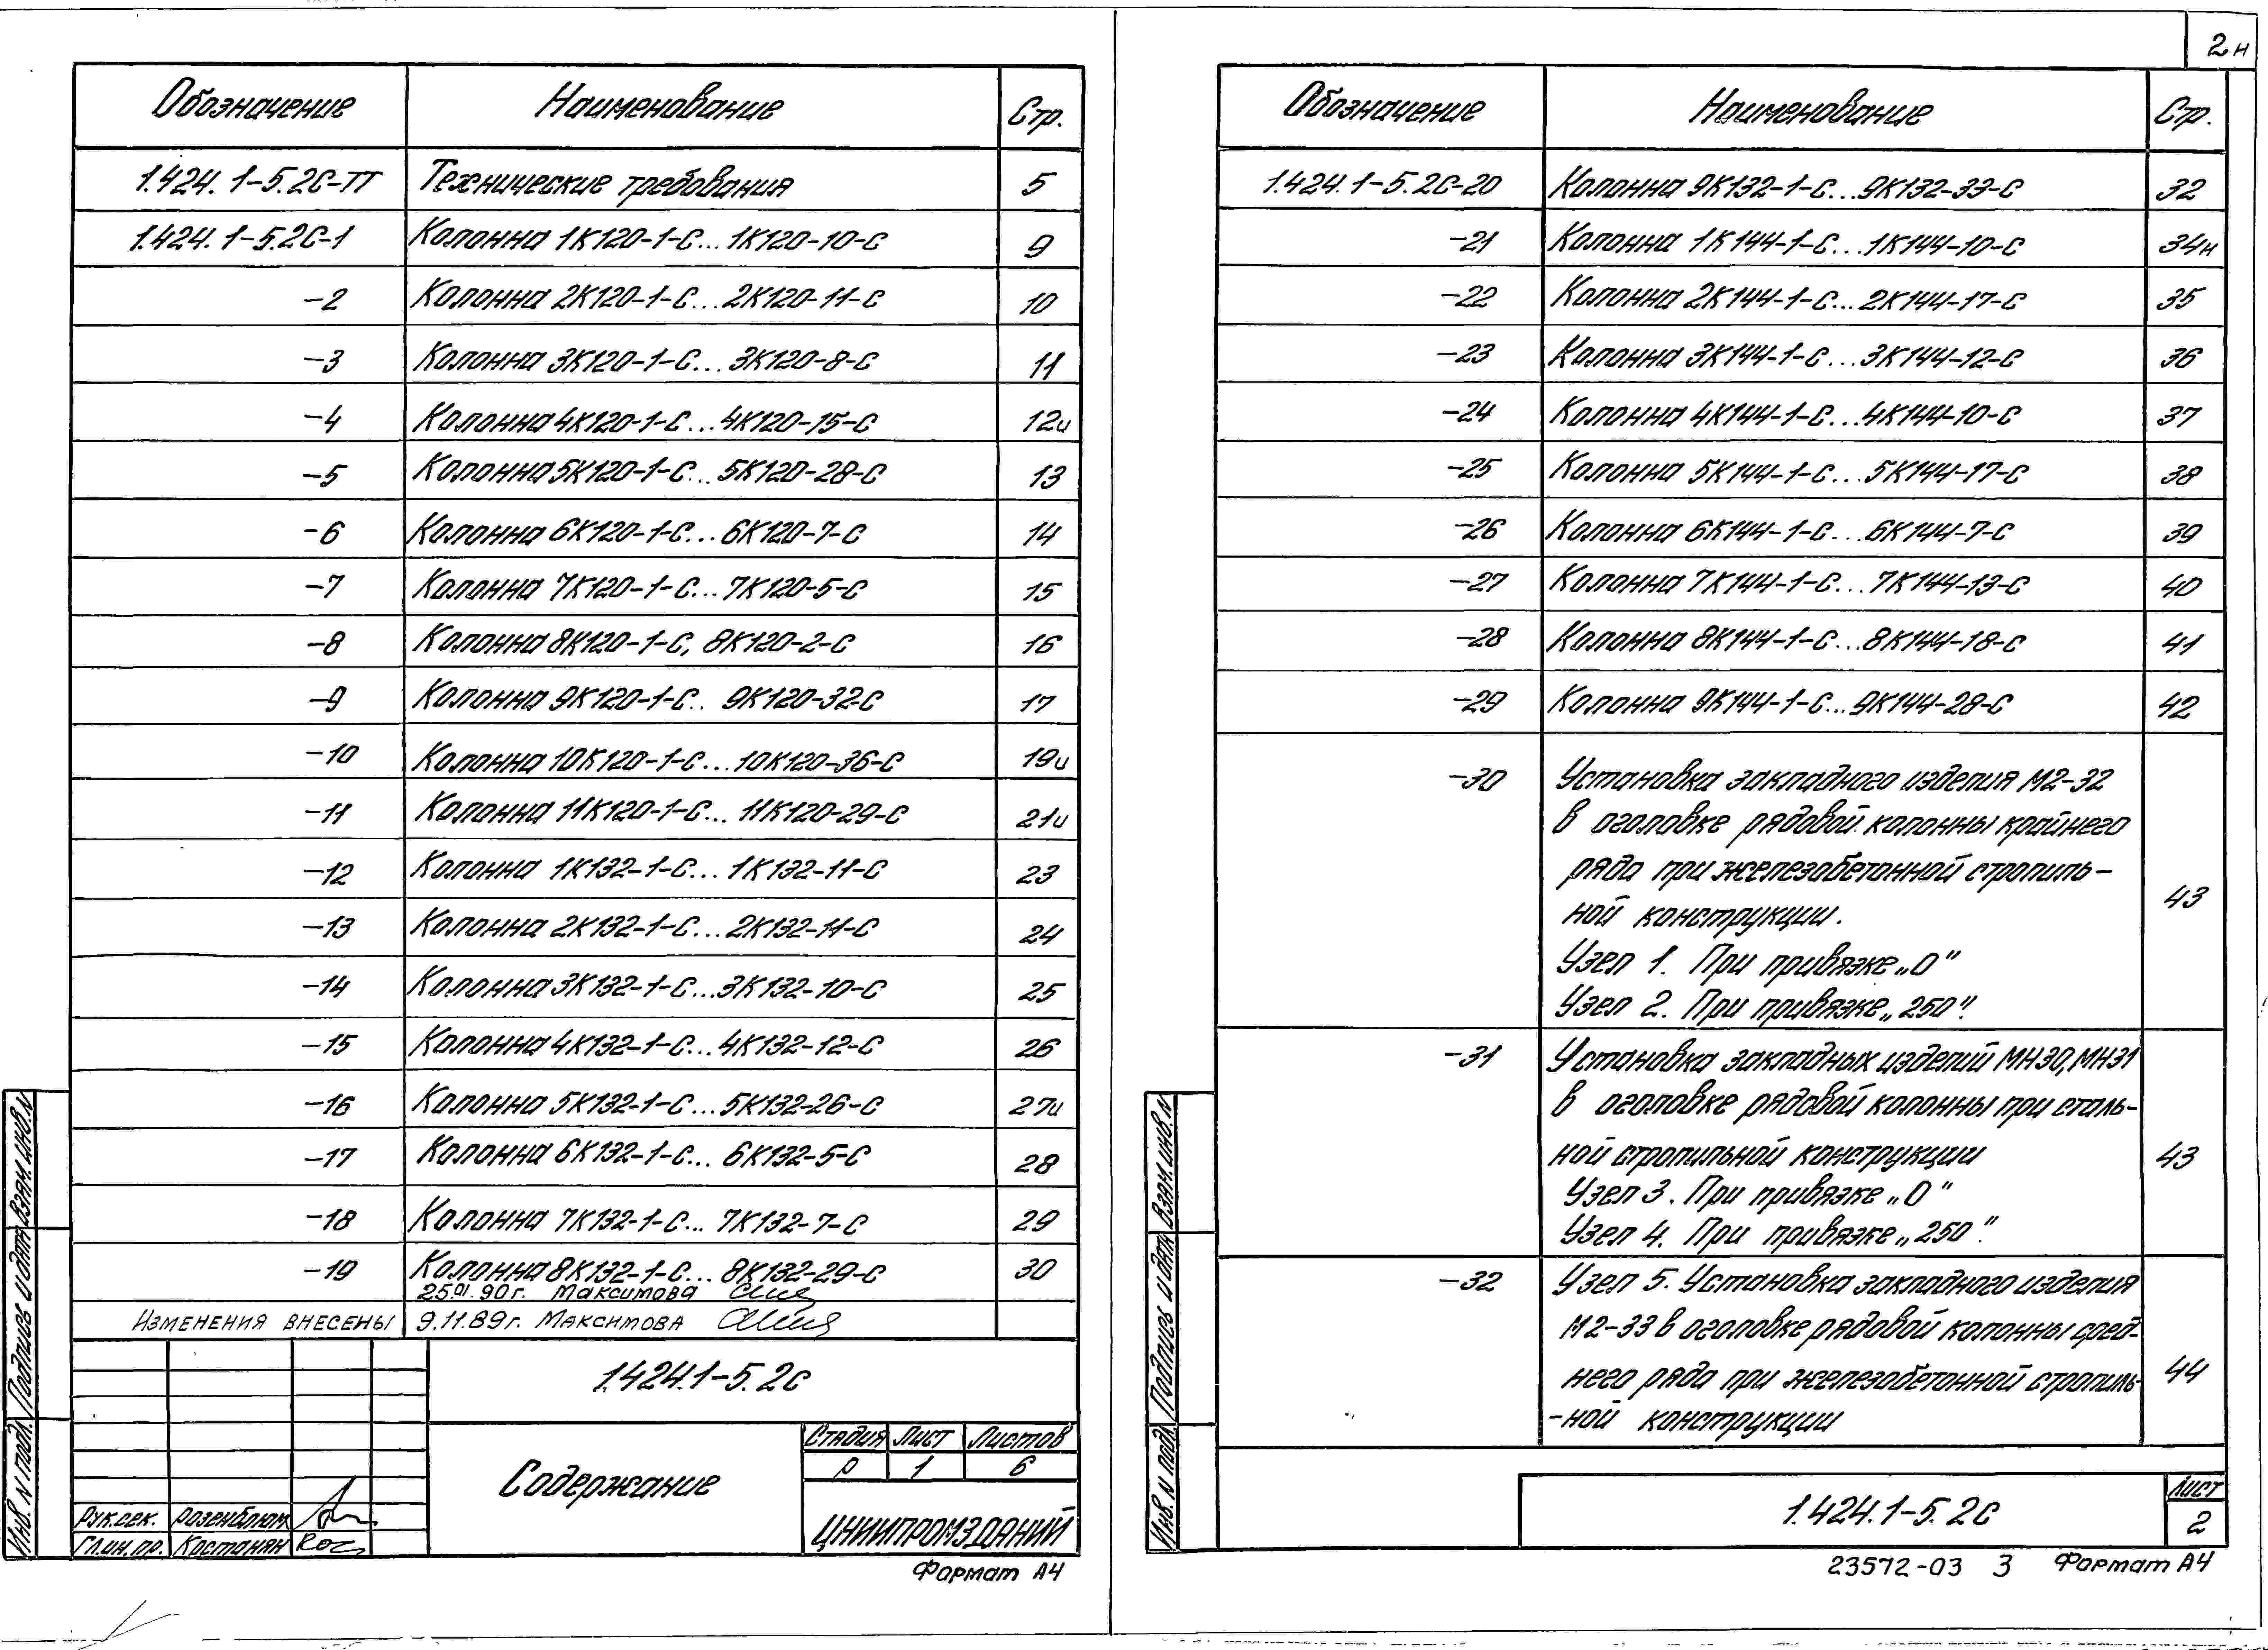 2н
Обозначение Наименование Стр.
1.424.1-5.2С-ТТ Технические требования 5
1.424.1-5.2С-1 Колонна 1К120-1-С...1К120-10-С 9
-2 Колонна 2К120-1-С...2К120-11-С 10
-3 Колонна 3К120-1-С...3К120-8-С 11
-4 Колонна 4К120-1-С...4К120-15-С 12и
-5 Колонна 5К120-1-С...5К120-28-С 13
-6 Колонна 6К120-1-С...6К120-7-С 14
-7 Колонна 7К120-1-С...7К120-5-С 15
-8 Колонна 8К120-1-С, 8К120-2-С 16
-9 Колонна 9К120-1-С.. 9К120-32-С 17
-10 Колонна 10К120-1-С...10К120-36-С 19и
-11 Колонна 11К120-1-С...11К120-29-С 21и
-12 Колонна 1К132-1-С...1К132-11-С 23
-13 Колонна 2К132-1-С...2К132-11-С 24
-14 Колонна 3К132-1-С...3К132-10-С 25
-15 Колонна 4К132-1-С...4К132-12-С 26
-16 Колонна 5К132-1-С...5К132-26-С 27и
-17 Колонна 6К132-1-С...6К132-5-С 28
-18 Колонна 7К132-1-С...7К132-7-С 29
-19 Колонна 8К132-1-С...8К132-29-С 30
25.01.90г. Максимова
Изменения внесены 9.11.89г. Максимова
1.424.1-5.2С
Содержание
Стадия Лист Листов
Р 1 6
ЦНИИПРОМЗДАНИЙ
Рук.сек. Розенблюм
Гл.ин.пр. Костанян
Взам. инв. N
Подпись и дата
Инв. N подл.
Формат А4
Обозначение Наименование Стр.
1.424.1-5.2С-20 Колонна 9К132-1-С...9К132-33-С 32
-21 Колонна 1К144-1-С...1К144-10-С 34н
-22 Колонна 2К144-1-С...2К144-17-С 35
-23 Колонна 3К144-1-С...3К144-12-С 36
-24 Колонна 4К144-1-С...4К144-10-С 37
-25 Колонна 5К144-1-С...5К144-17-С 38
-26 Колонна 6К144-1-С...6К144-7-С 39
-27 Колонна 7К144-1-С...7К144-13-С 40
-28 Колонна 8К144-1-С...8К144-18-С 41
-29 Колонна 9К144-1-С...9К144-28-С 42
-30 Установка закладного изделия М2-32
в оголовке рядовой колонны крайнего
ряда при железобетонной стропиль-
ной конструкции. 43
Узел 1. При привязке „0"
Узел 2. При привязке „250".
-31 Установка закладных изделий МН30, МН31
в оголовке рядовой колонны при сталь-
ной стропильной конструкции 43
Узел 3. При привязке „0"
Узел 4. При привязке „250".
-32 Узел 5. Установка закладного изделия
М2-33 в оголовке рядовой колонны сред-
него ряда при железобетонной стропиль- 44
-ной конструкции
Взам. инв. N
Подпись и дата
Инв. N подл.
1.424.1-5.2С
Лист
2
23572-03 3 Формат А4